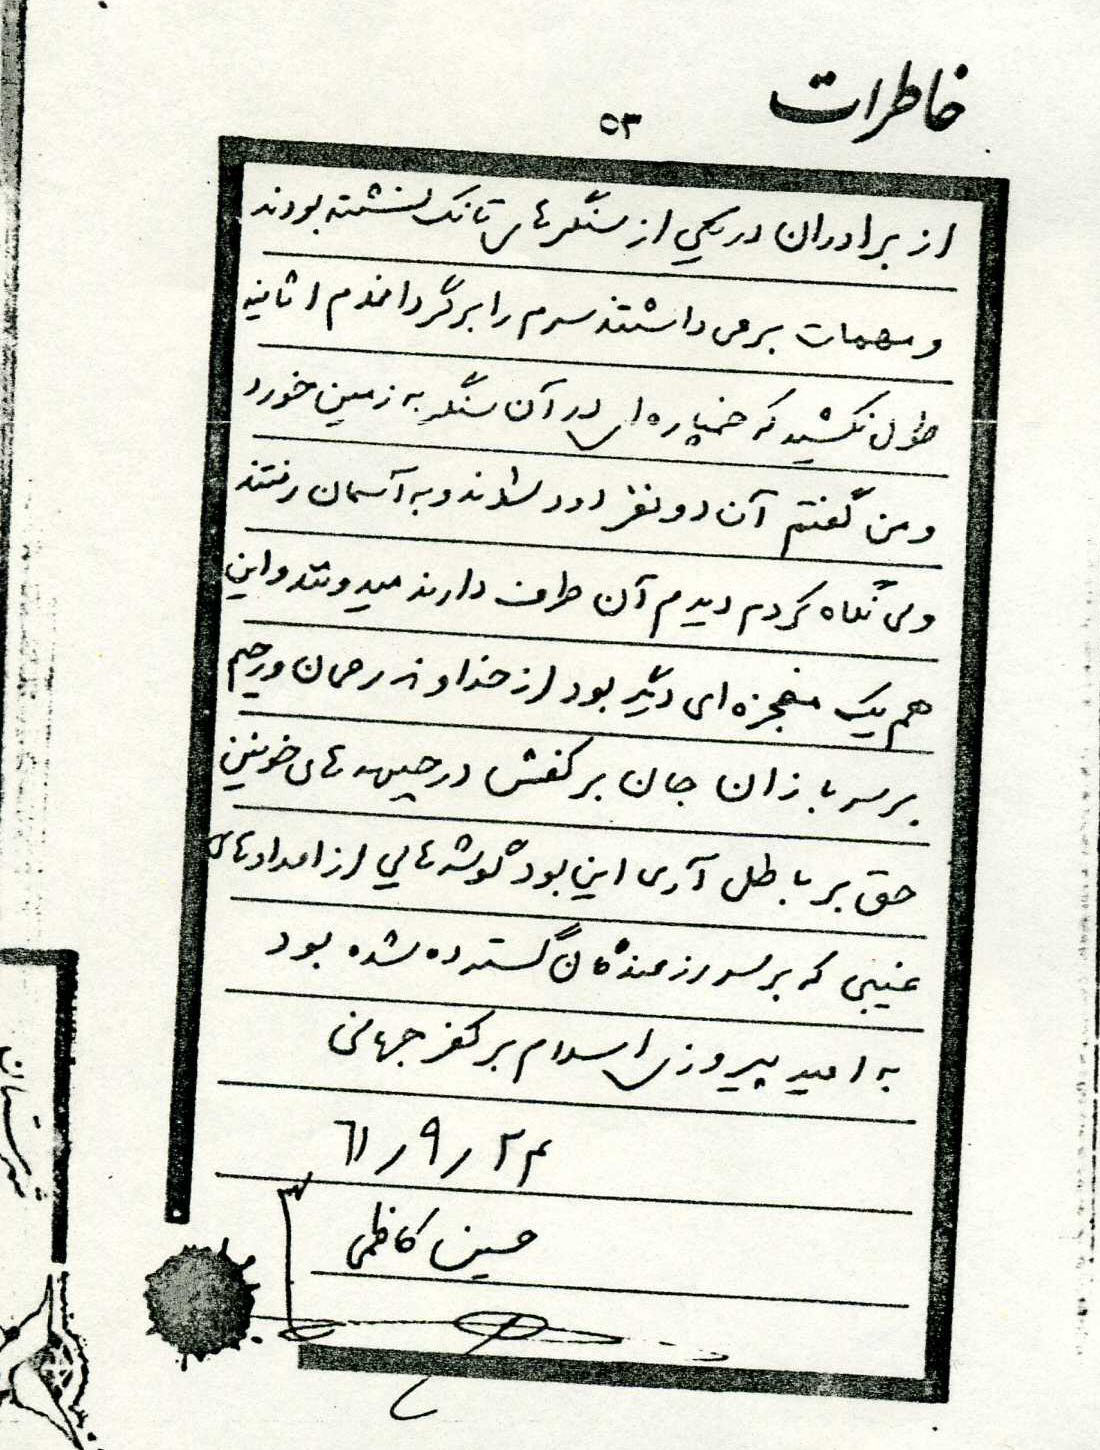 خاطرات
۵۳
از برادران در یکی از سنگرهای تانک نشسته بودند
و مهمات برمی داشتند سرم را برگرداندم ۱ ثانیه
طول نکشید که خمپاره ای در آن سنگر به زمین خورد
و من گفتم آن دو نفر دود شدند و به آسمان رفتند
ولی نگاه کردم دیدم آن طرف دارند میدوند و این
هم یک معجزه ای دیگر بود از خداوند رحمان و رحیم
بر سربازان جان بر کفش در جبهه های خونین
حق بر باطل آری این بود گوشه هایی از امدادهای
غیبی که بر سر رزمندگان گسترده شده بود
به امید پیروزی اسلام بر کفر جهانی
۶۱/۹/۲۴
حسین کاظمی
شهرستان